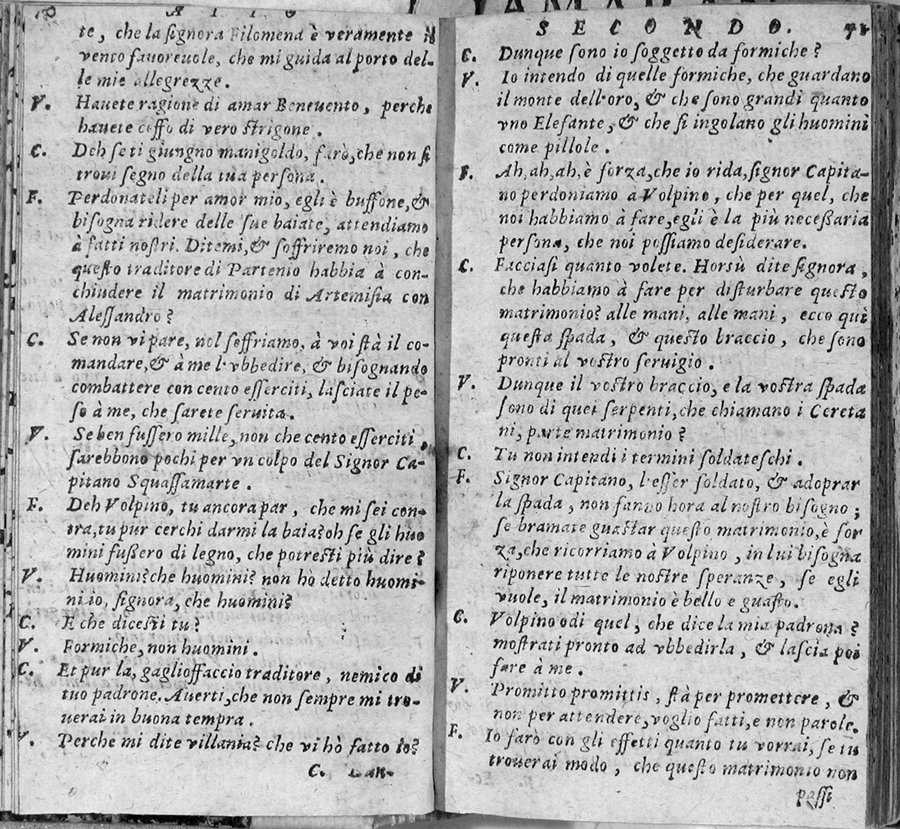 ATTO
te, che la ſignora Filomena è veramente il
vento fauoreuole, che mi guida al porto del-
le mie allegrezze.
V. Hauete ragione di amar Beneuento, perche
hauete ceffo di vero ſtrigone.
C. Deh ſe ti giungno manigoldo, farò, che non ſi
troui ſegno della tua perſona.
F. Perdonateli per amor mio, egli è buffone, &
biſogna ridere delle ſue baiate, attendiamo
à fatti noſtri. Ditemi, & ſoffriremo noi, che
queſto traditore di Partenio habbia à con-
chiudere il matrimonio di Artemiſia con
Aleſſandro?
C. Se non vi pare, nol ſoffriamo, à voi ſtà il co-
mandare, & à me l'vbbedire, & biſognando
combattere con cento eſſerciti, laſciate il pe-
ſo à me, che ſarete ſeruita.
V. Se ben fuſſero mille, non che cento eſſerciti,
ſarebbono pochi per vn colpo del Signor Ca-
pitano Squaſſamarte.
F. Deh Volpino, tu ancora par, che mi ſei con-
tra, tu pur cerchi darmi la baia? oh ſe gli huo
mini fußero di legno, che potreſti più dire?
V. Huomini? che huomini? non hò detto huomi-
ni io, ſignora, che huomini?
C. E che diceſti tu?
V. Formiche, non huomini.
C. Et pur la, gaglioffaccio traditore, nemico di
tuo padrone. Auerti, che non ſempre mi tro-
uerai in buona tempra.
V. Perche mi dite villania? che vi hò fatto io?
C.
SECONDO.
C. Dunque ſono io ſoggetto da formiche?
V. Io intendo di quelle formiche, che guardano
il monte dell'oro, & che ſono grandi quanto
vno Elefante, & che ſi ingolano gli huomini
come pillole.
F. Ah, ah, ah, è forza, che io rida, ſignor Capita-
no perdoniamo à Volpino, che per quel, che
noi habbiamo à fare, egli è la più neceßaria
perſona, che noi poſſiamo deſiderare.
C. Facciaſi quanto volete. Horsù dite ſignora,
che habbiamo à fare per diſturbare queſto
matrimonio? alle mani, alle mani, ecco quì
queſta ſpada, & queſto braccio, che ſono
pronti al voſtro ſeruigio.
V. Dunque il voſtro braccio, e la voſtra ſpada
ſono di quei ſerpenti, che chiamano i Cereta
ni, parte matrimonio?
C. Tu non intendi i termini ſoldateſchi.
F. Signor Capitano, l'eſſer ſoldato, & adoprar
la ſpada, non fanno hora al noſtro biſogno;
ſe bramate guaſtar queſto matrimonio, è for
za, che ricorriamo à Volpino, in lui biſogna
riponere tutte le noſtre ſperanze, ſe egli
vuole, il matrimonio è bello e guaſto.
C. Volpino odi quel, che dice la mia padrona?
moſtrati pronto ad vbbedirla, & laſcia poi
fare à me.
V. Promitto promittis, ſtà per promettere, &
non per attendere, voglio fatti, e non parole.
F. Io farò con gli effetti quanto tu vorrai, ſe tu
trouerai modo, che queſto matrimonio non
paſſi